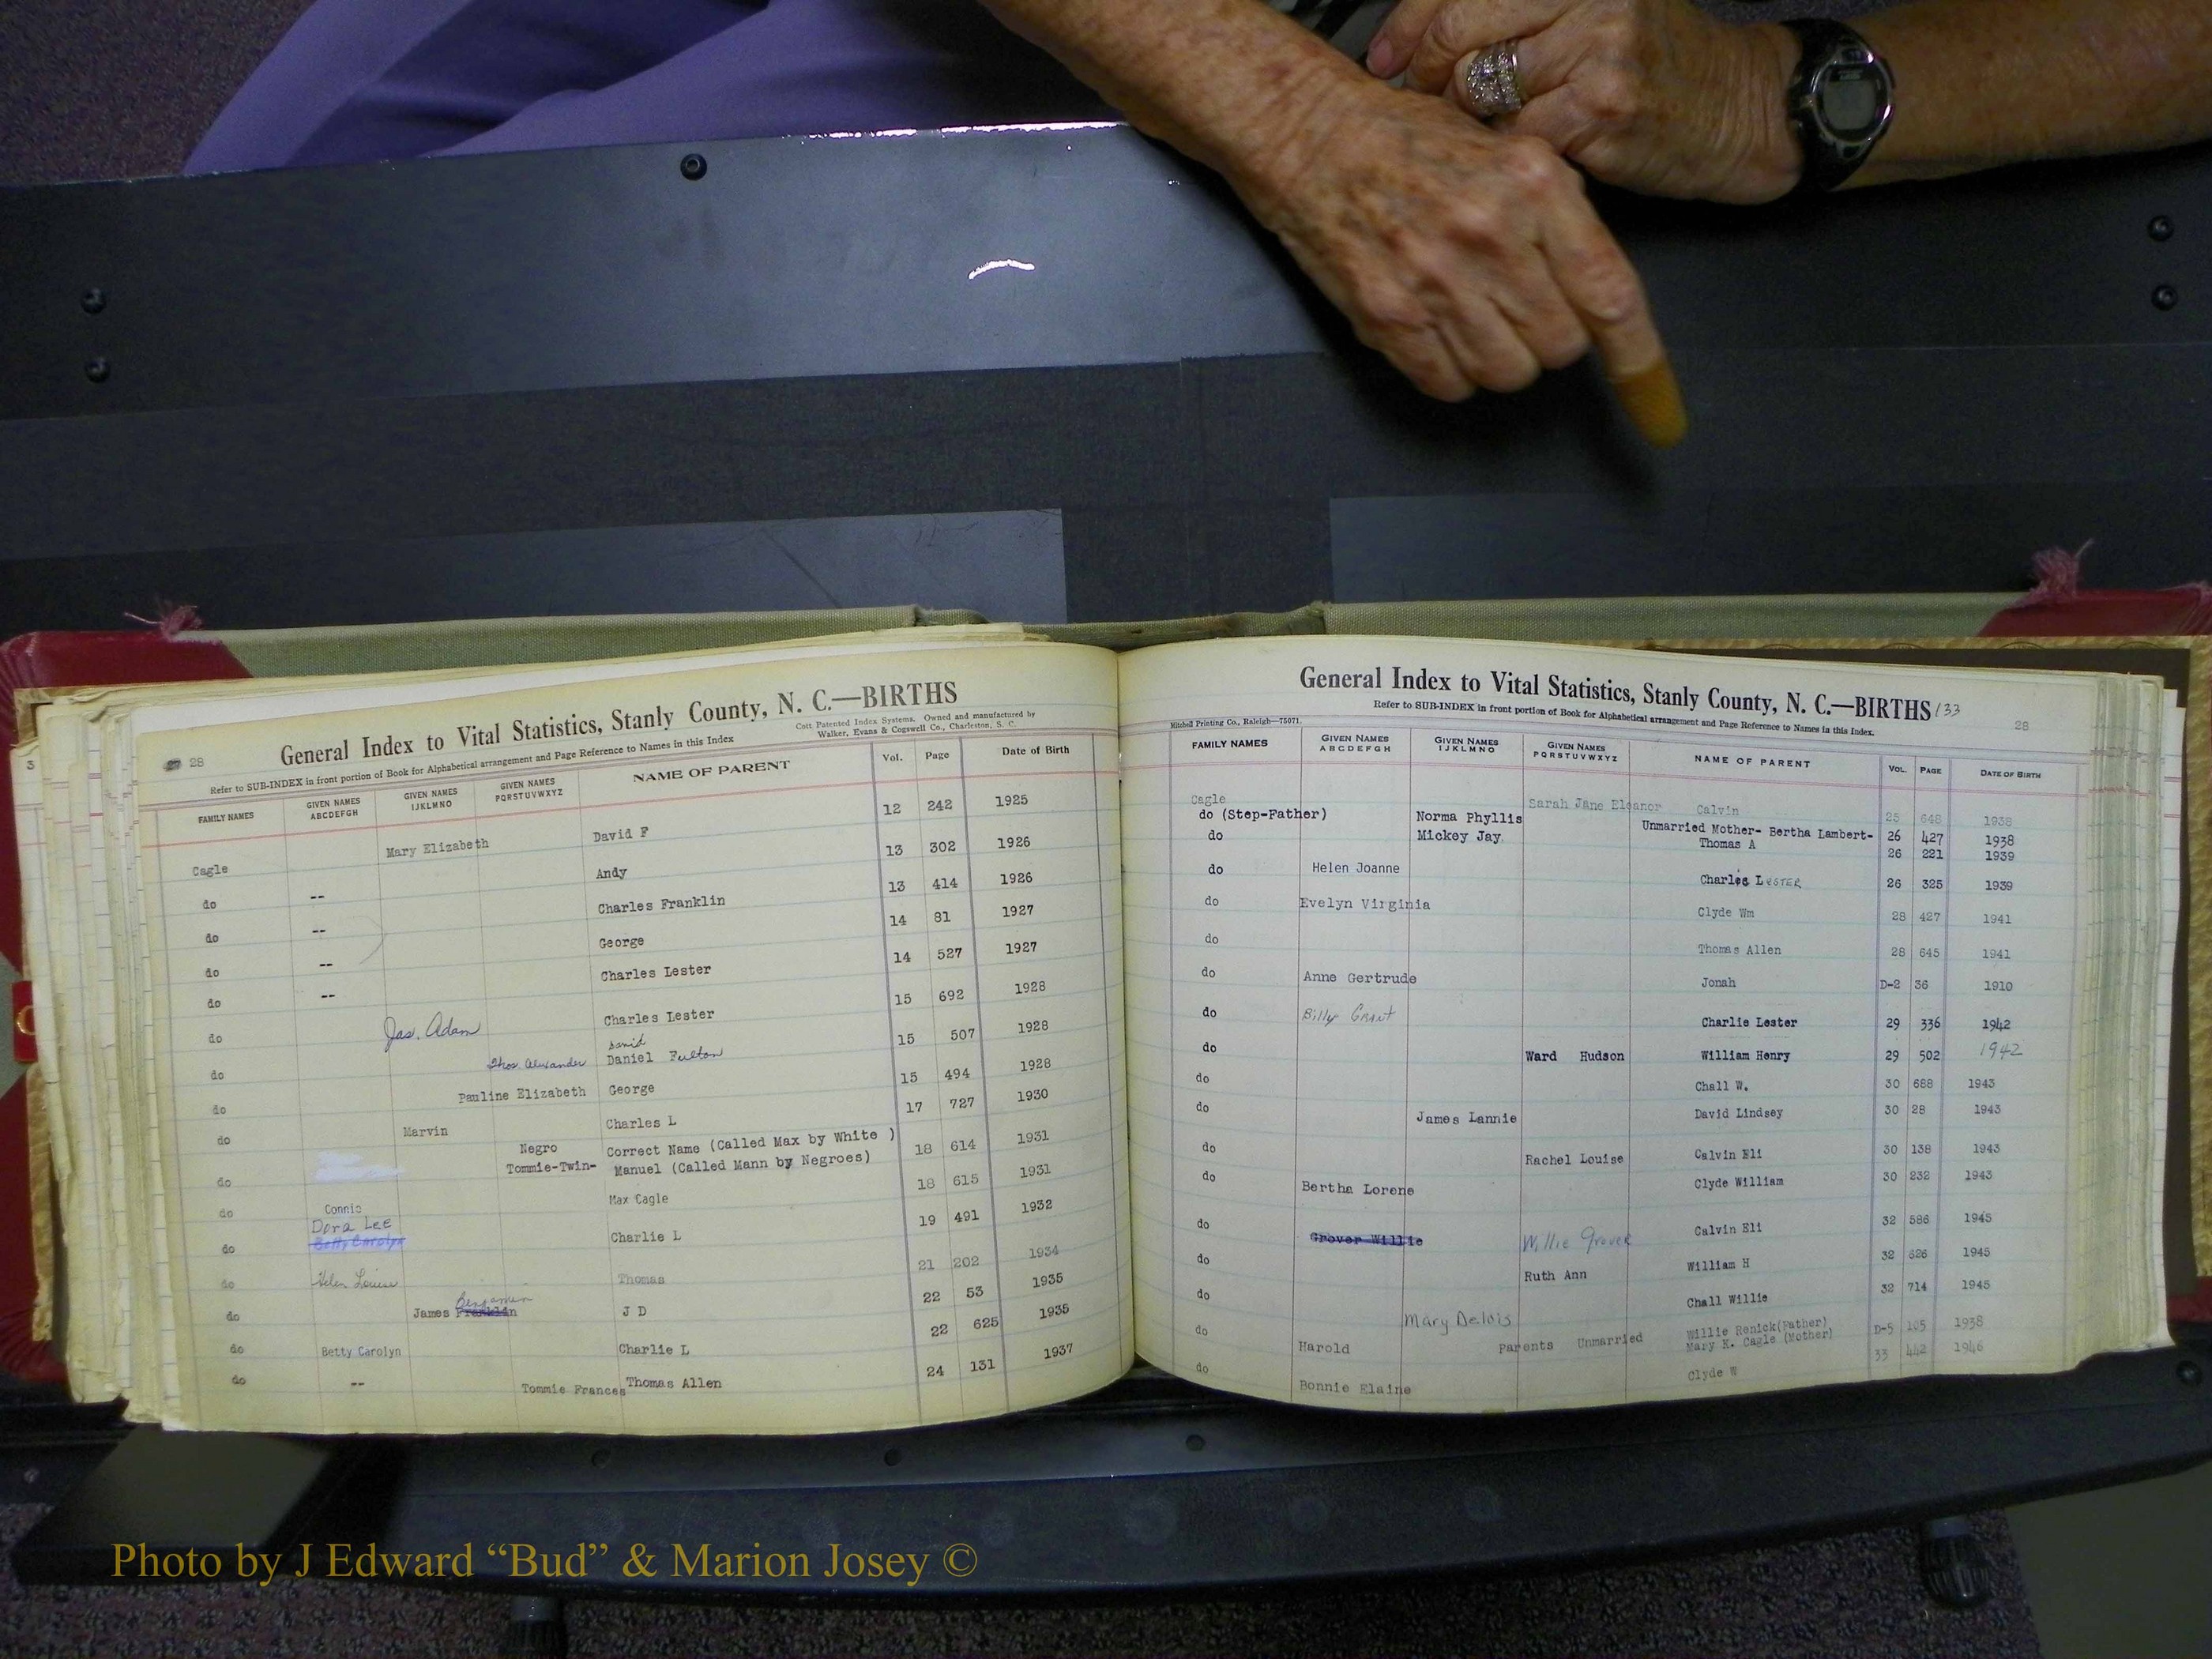 28
General Index to Vital Statistics, Stanly County, N. C.—BIRTHS
Cott Patented Index Systems. Owned and manufactured by
Walker, Evans & Cogswell Co., Charleston, S. C.
Refer to SUB-INDEX in front portion of Book for Alphabetical arrangement and Page Reference to Names in this Index
FAMILY NAMES GIVEN NAMES ABCDEFGH GIVEN NAMES IJKLMNO GIVEN NAMES PQRSTUVWXYZ NAME OF PARENT Vol. Page Date of Birth
Cagle Mary Elizabeth David F 12 242 1925
do -- Andy 13 302 1926
do -- Charles Franklin 13 414 1926
do -- George 14 81 1927
do -- Charles Lester 14 527 1927
do Jas. Adam Charles Lester 15 692 1928
David
do Thos. Alexander Daniel Fulton 15 507 1928
do Pauline Elizabeth George 15 494 1928
do Marvin Charles L 17 727 1930
Negro Correct Name (Called Max by White )
do Tommie-Twin- Manuel (Called Mann by Negroes) 18 614 1931
do Connie Max Cagle 18 615 1931
Dora Lee
do Betty Carolyn Charlie L 19 491 1932
do Helen Louise Thomas 21 202 1934
Benjamin
do James Franklin J D 22 53 1935
do Betty Carolyn Charlie L 22 625 1935
do -- Tommie Frances Thomas Allen 24 131 1937
General Index to Vital Statistics, Stanly County, N. C.—BIRTHS 133
Refer to SUB-INDEX in front portion of Book for Alphabetical arrangement and Page Reference to Names in this Index.
Mitchell Printing Co., Raleigh—75071.
28
FAMILY NAMES GIVEN NAMES ABCDEFGH GIVEN NAMES IJKLMNO GIVEN NAMES PQRSTUVWXYZ NAME OF PARENT VOL. PAGE DATE OF BIRTH
Cagle Sarah Jane Eleanor Calvin 25 648 1938
do (Step-Father) Norma Phyllis Unmarried Mother- Bertha Lambert- 26 427 1938
do Mickey Jay. Thomas A 26 221 1939
do Helen Joanne Charles Lester 26 325 1939
do Evelyn Virginia Clyde Wm 28 427 1941
do Thomas Allen 28 645 1941
do Anne Gertrude Jonah D-2 36 1910
do Billy Grant Charlie Lester 29 336 1942
do Ward Hudson William Henry 29 502 1942
do Chall W. 30 688 1943
do James Lannie David Lindsey 30 28 1943
do Rachel Louise Calvin Eli 30 138 1943
do Bertha Lorene Clyde William 30 232 1943
do Grover Willie Willie Grover Calvin Eli 32 586 1945
do Ruth Ann William H 32 626 1945
do Mary Delois Chall Willie 32 714 1945
do Harold Parents Unmarried Willie Renick(Father) D-5 105 1938
Mary K. Cagle (Mother)
do Bonnie Elaine Clyde W 33 442 1946
Photo by J Edward “Bud” & Marion Josey ©